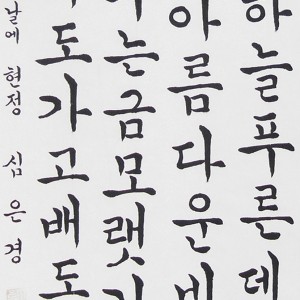 하늘푸른데
아름다운
는금모랫
도가고배도
날에 현정 심은경